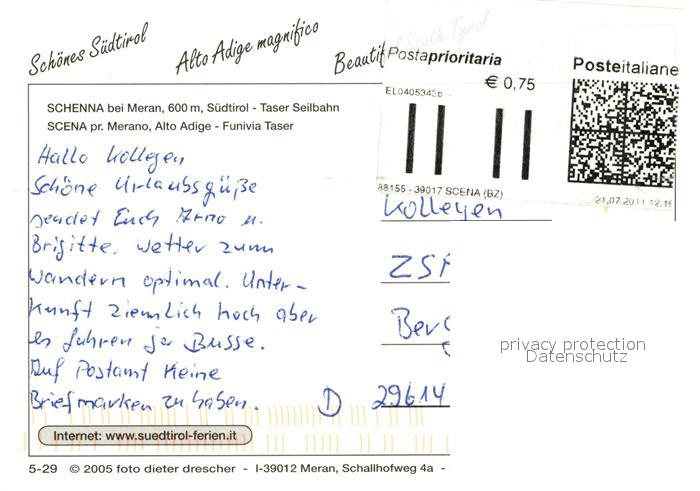 Schönes Südtirol
Alto Adige magnifico
Beautif
South Tyrol
Postaprioritaria
€ 0,75
Posteitaliane
EL0405343b
88155 - 39017 SCENA (BZ)
21.07.2011 12.16
SCHENNA bei Meran, 600 m, Südtirol - Taser Seilbahn
SCENA pr. Merano, Alto Adige - Funivia Taser
Hallo Kollegen
Schöne Urlaubsgrüße
sendet Euch Arno u.
Brigitte. Wetter zum
Wandern optimal. Unter-
kunft ziemlich hoch aber
es fahren ja Busse.
Auf Postamt Keine
Briefmarken zu haben.
Kollegen
ZSF
Berg
D 29614
privacy protection
Datenschutz
Internet: www.suedtirol-ferien.it
5-29 © 2005 foto dieter drescher - I-39012 Meran, Schallhofweg 4a -